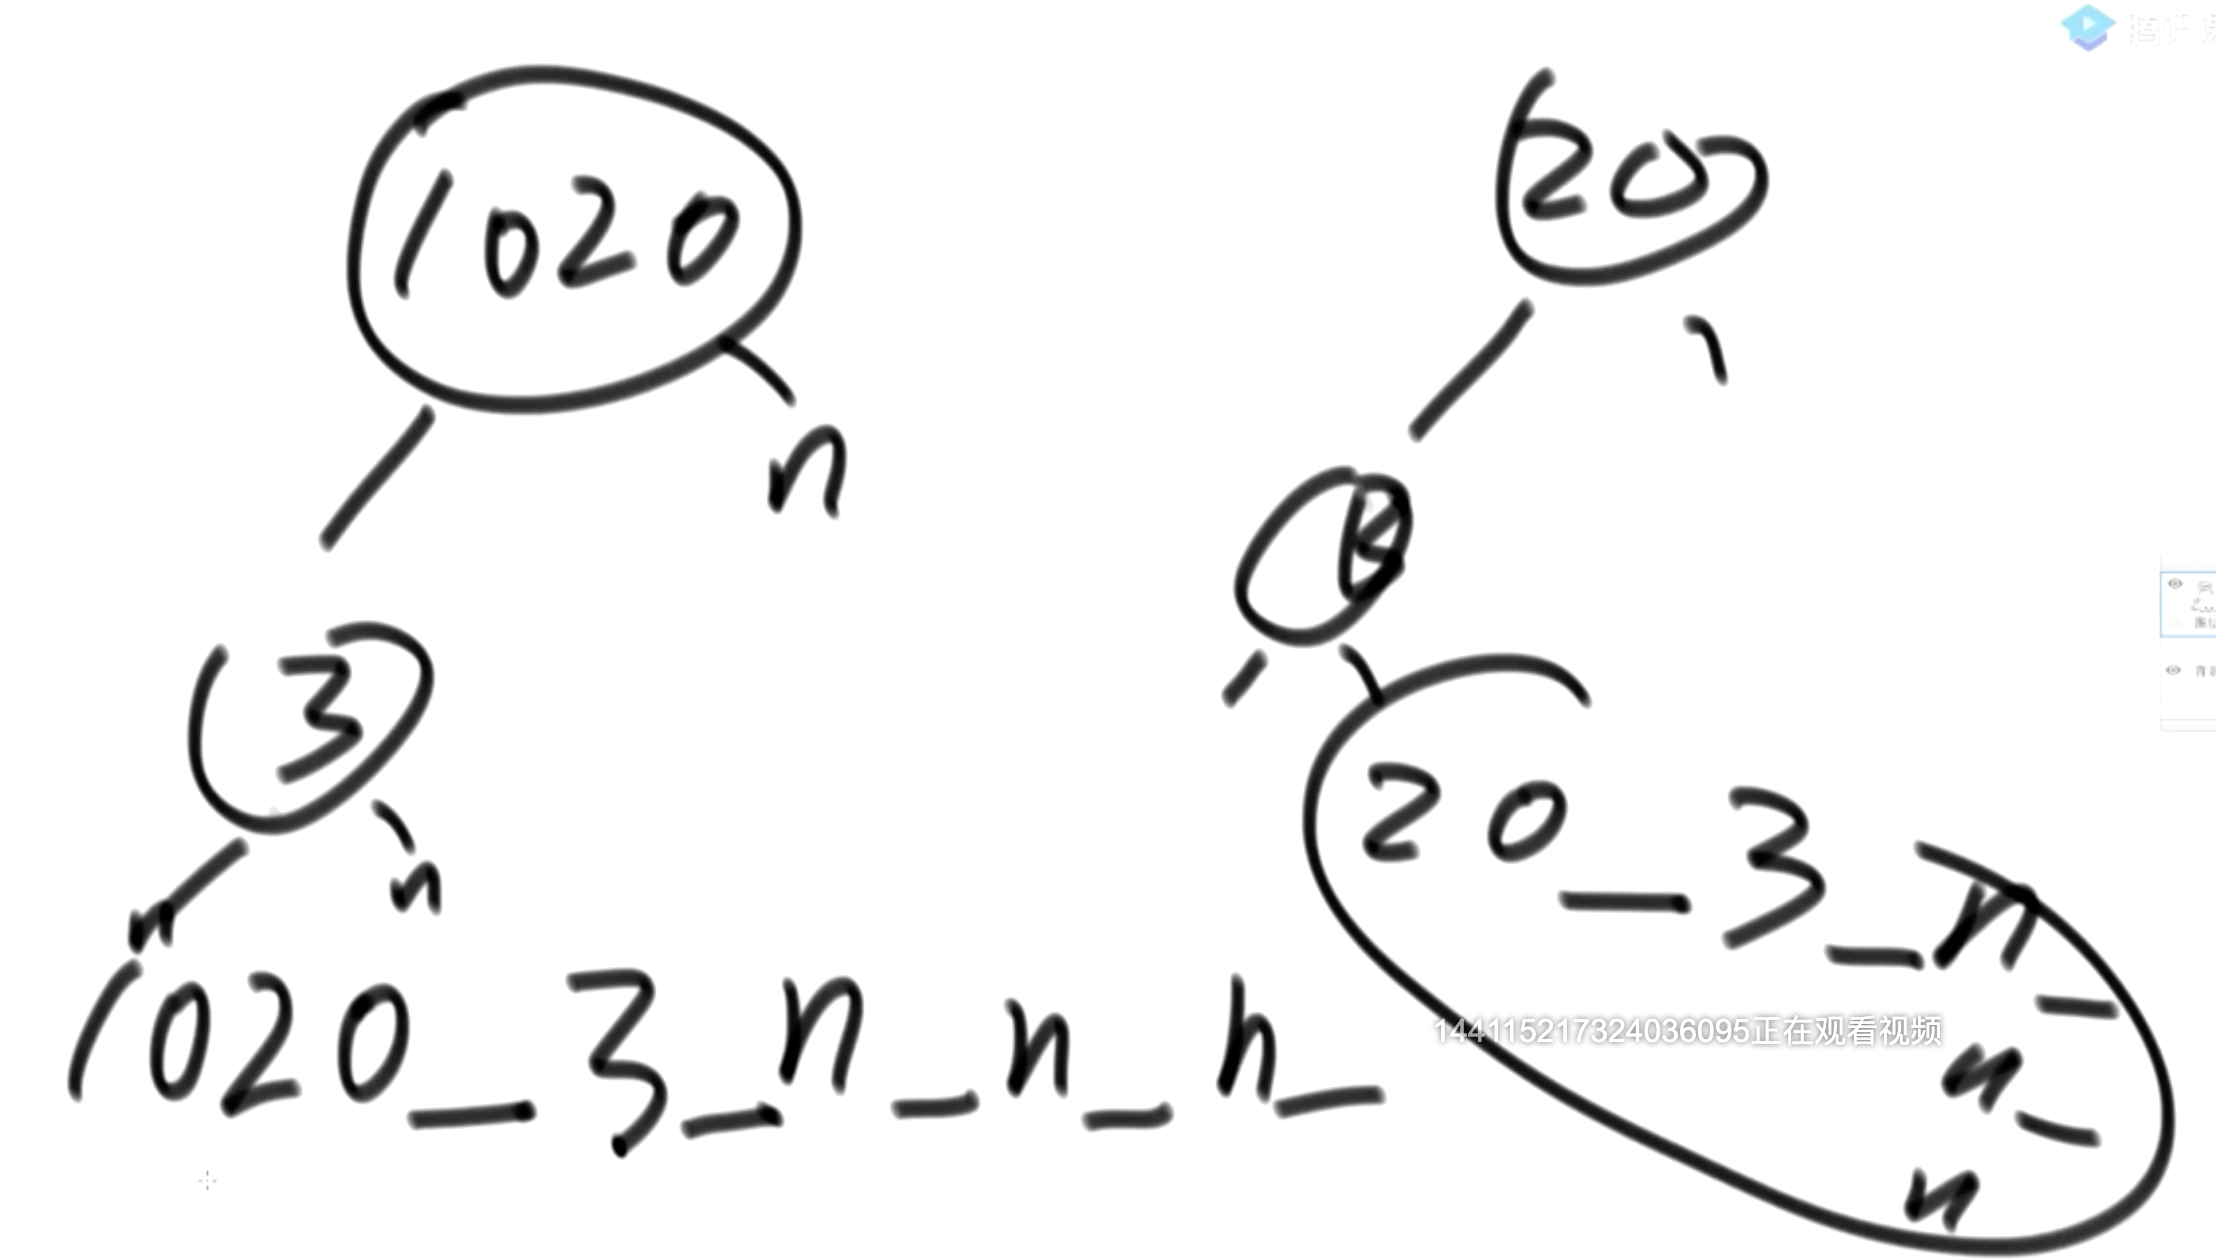 1020
n
3
n
n
1020_3_n_n_n_
20
20_3_n_
n_
n
144115217324036095正在观看视频
腾讯